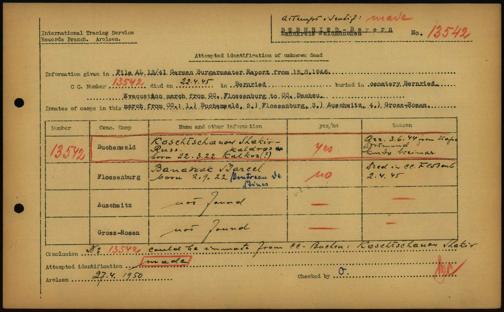 attempt. identif: made
International Tracing Service
Records Branch. Arolsen.
BERNRIED-Bayern
No. 13542
Attempted identification of unknown dead
Information given in File AL 12/41 German Burgermaster Report from
C.C. Number 13542 died 22.4.45 in Bernried buried in cemetery Bernried.
Evacuation march from CC. Flossenburg to CC. Dachau.
Inmates of camps in this march from CC.: 1.) Buchenwald, 2.) Flossenburg, 3.) Auschwitz, 4.) Gross-Rosen.
Number Conc. Camp Name and other information yes/no Reason
13542 Buchenwald Koschtschanow Shakir
Russ
born 22.3.22 yes
Flossenburg
born 2.9.22 no Died in CC. Flossenb.
2.4.45
Auschwitz not found —
Gross-Rosen not found —
Conclusion No 13542 could be inmate from CC. Buchen: Koschtschanow Shakir
Attempted identification made
Arolsen 27.4. 1950 Checked by